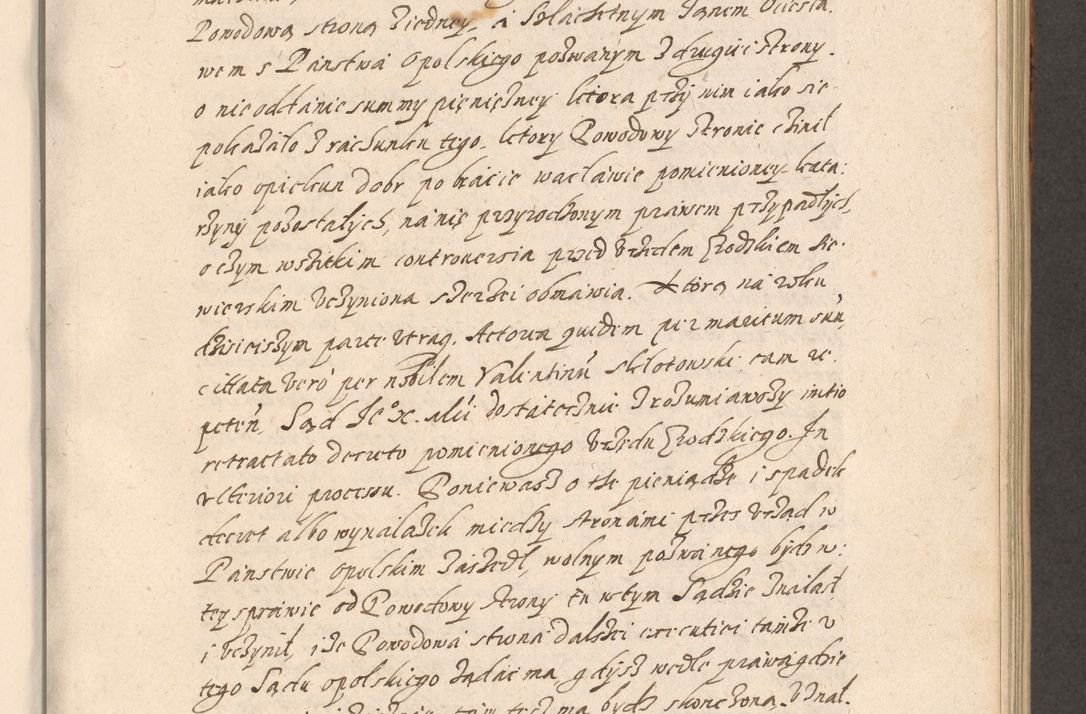 Powodową stroną z iedney, á Szlachetnym Janem Ociesa
wem s Pánstwá Opolskiego pozwanym z drugiei strony.
o nieoddanie summy pięniężney ktora przÿ nim iako się
pokazało z rachunku tego, ktory Powodowy stronie czinił
iako opiekun dobr po bracie wacławie pomienioney kata:
rżyny pozostałych, na nię przyrodzonym prawem przypadłych,
o czym wszitkim controuersia przed Vrzędem Grodzkiem Sie:
wierskim vczyniona szerzei obmawia. Ktorą na roku
dzisieiszym parte vtraq. Actorea quidem per maritum suū,
citata verò per nobilem Valentinū Sklotowski eam re
peteń, Sąd Je° X. Mci dostatecznie zrozumiawszy initio
retractato decreto pomienionego Vrzędu Grodzkiego. In
vlteriori processu. Poniewasz o the pieniądze i spadek
decret albo wynalazek miedzy stronami przes vrząd w
Pánstwie opolskim zaszedł, wolnym pozwanego bydz w:
tey sprawie od Powodowy strony tu w tym Sądzie znalasł
i vczynił, isz Powodowa strona dalszei executiei tamże v
tego Sądu opolskiego żądać ma, gdysz wedle prawa gdzie
tam tesz ma bydz skonczona. Vznał.